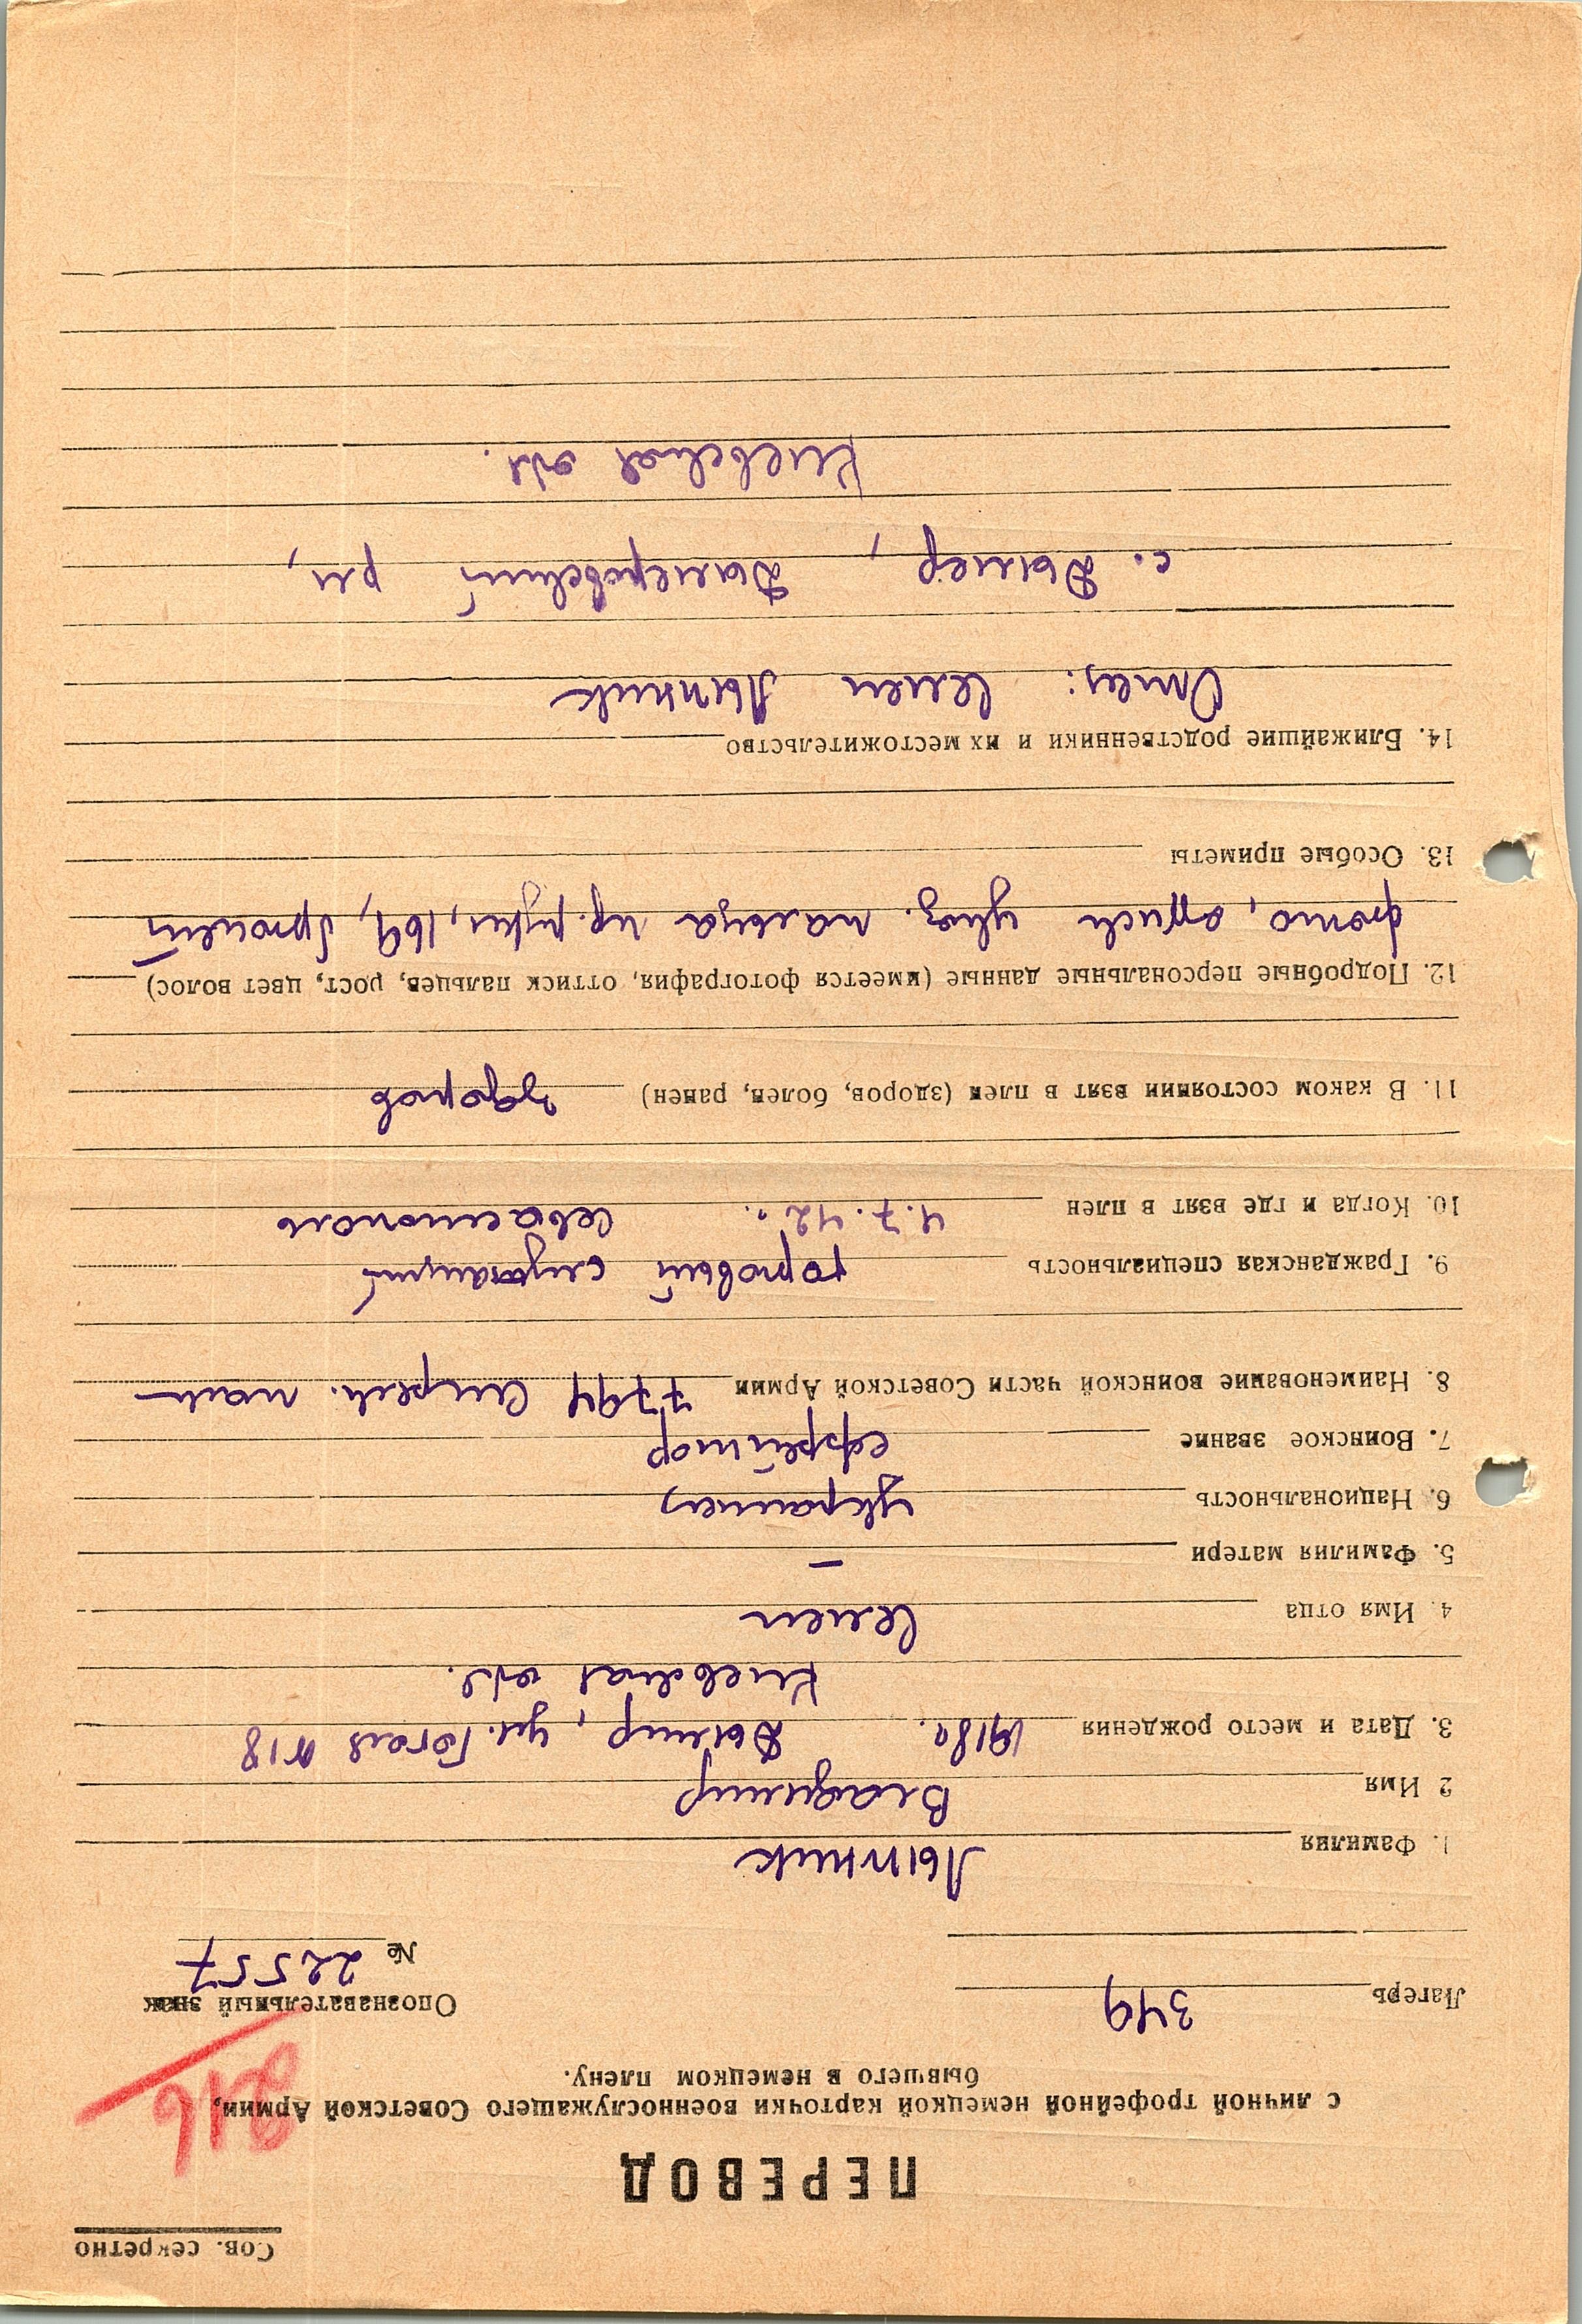 Сов. секретно
ПЕРЕВОД
с личной трофейной немецкой карточки военнослужащего Советской Армии,
бывшего в немецком плену.
Лагерь 349
Опознавательный знак
№ 22557
1. Фамилия Лыпник
2 Имя Владимир
3. Дата и место рождения 1918г. Дымир, ул. Гоголя №18
Киевская обл.
4. Имя отца Семен
5. Фамилия матери —
6. Национальность украинец
7. Воинское звание ефрейтор
8. Наименование воинской части Советской Армии 7794 Стрелк. полк
9. Гражданская специальность торговый служащий
10. Когда и где взят в плен 4.7.42г. Севастополь
11. В каком состоянии взят в плен (здоров, болен, ранен) здоров
12. Подробные персональные данные (имеется фотография, оттиск пальцев, рост, цвет волос)
фото, оттиск указ. пальца пр. руки, 169, брюнет
13. Особые приметы
14. Ближайшие родственники и их местожительство
Отец: Семен Лыпник
с. Дымер, Дымеровский р-н,
Киевская обл.